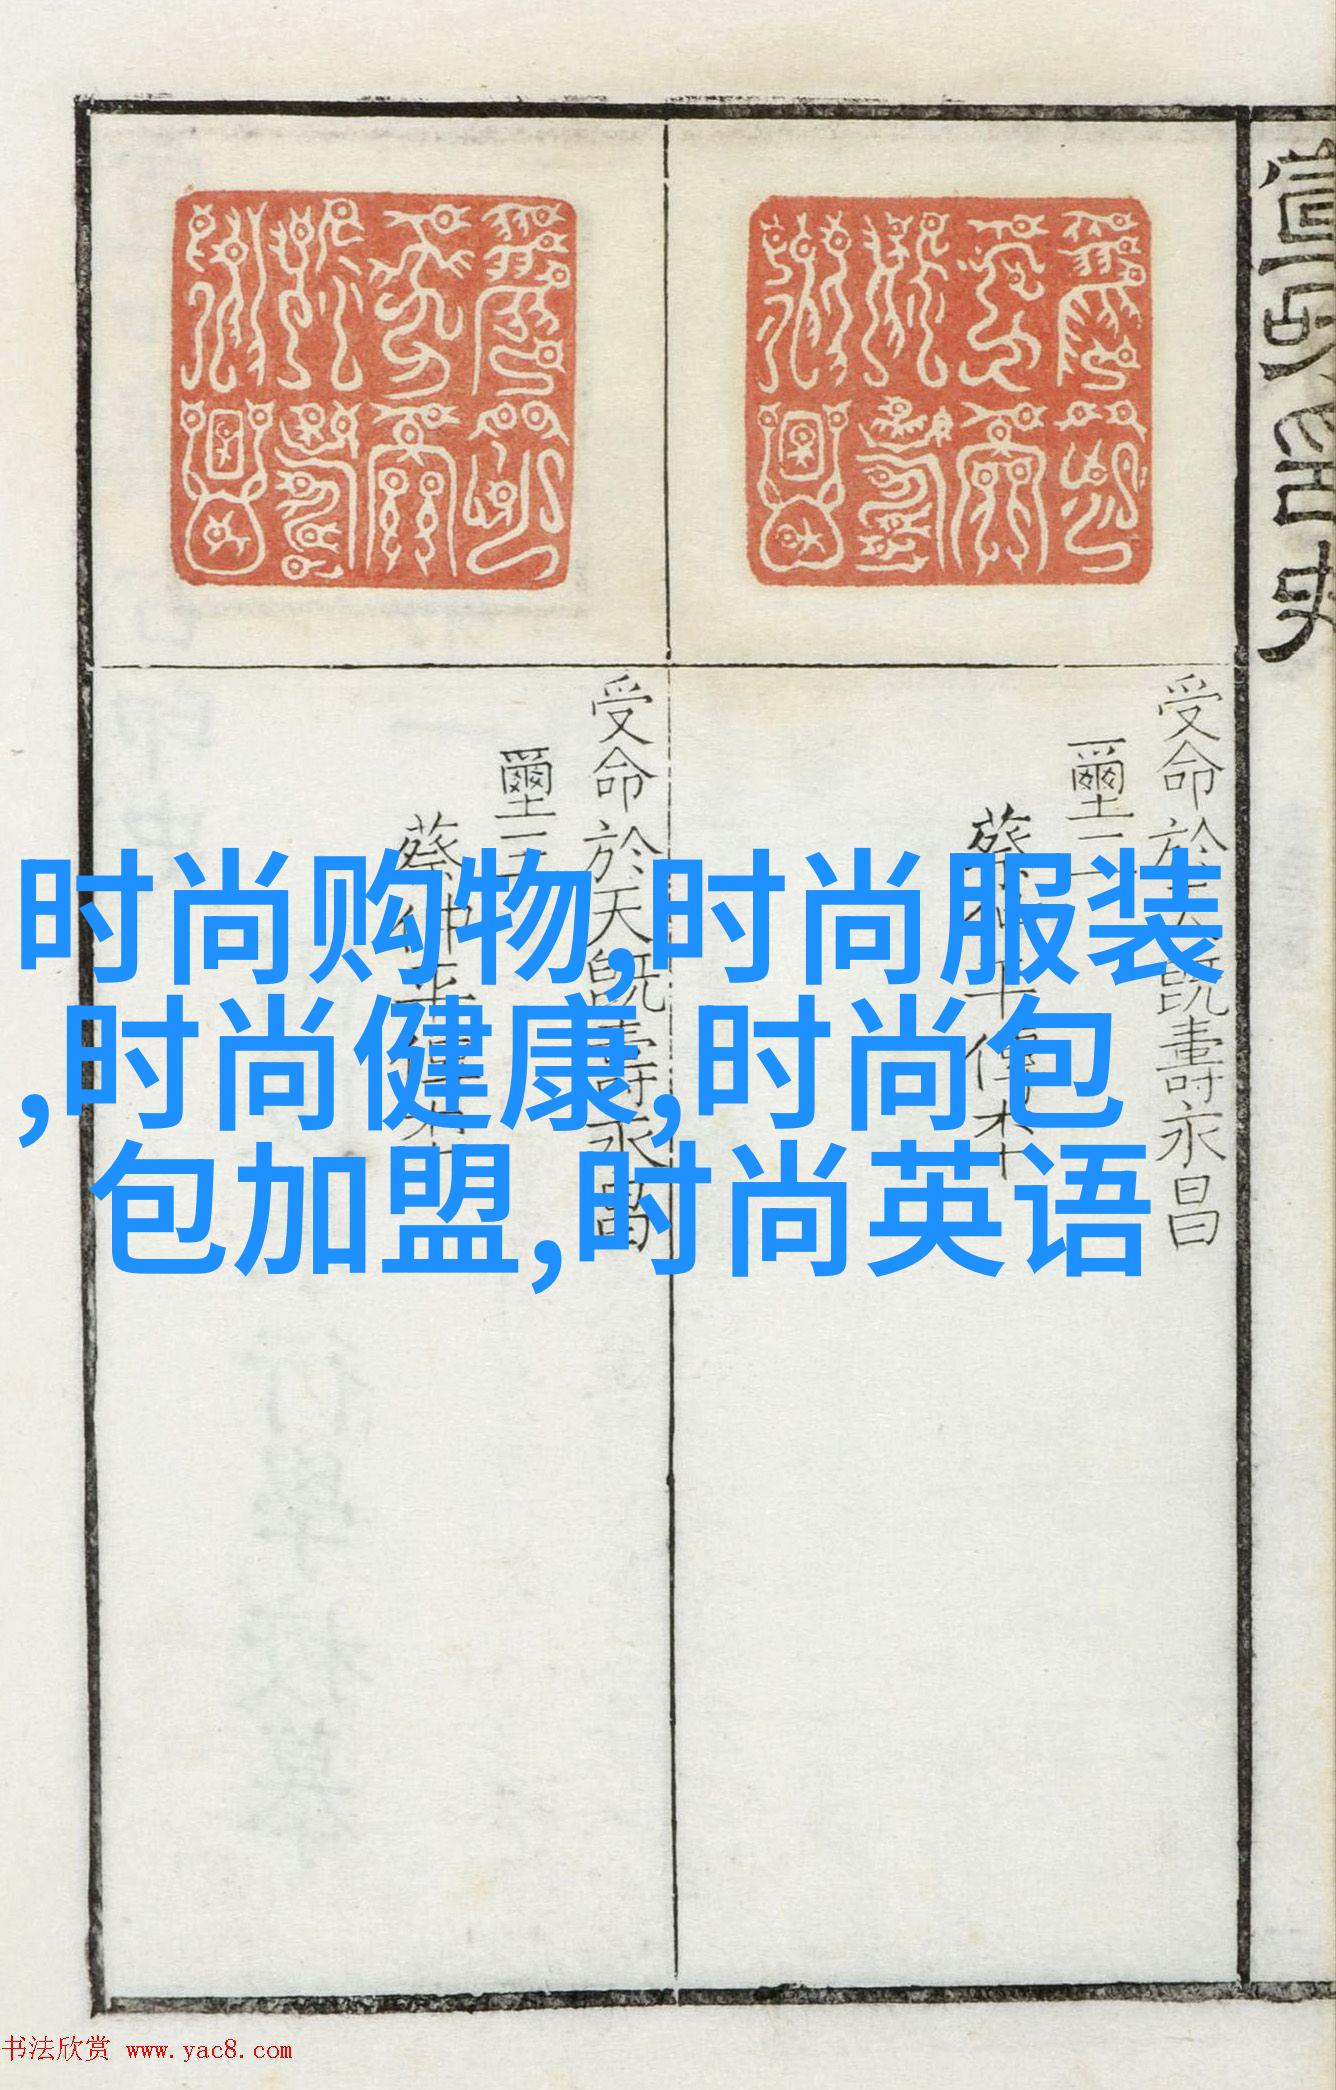 受命於天既壽永昌
璽二
蔡仲平傳本
受命於天既壽永昌
璽三
蔡仲平傳本
时尚购物,时尚服装
,时尚健康,时尚包
包加盟,时尚英语
书法欣赏 www.yac8.com